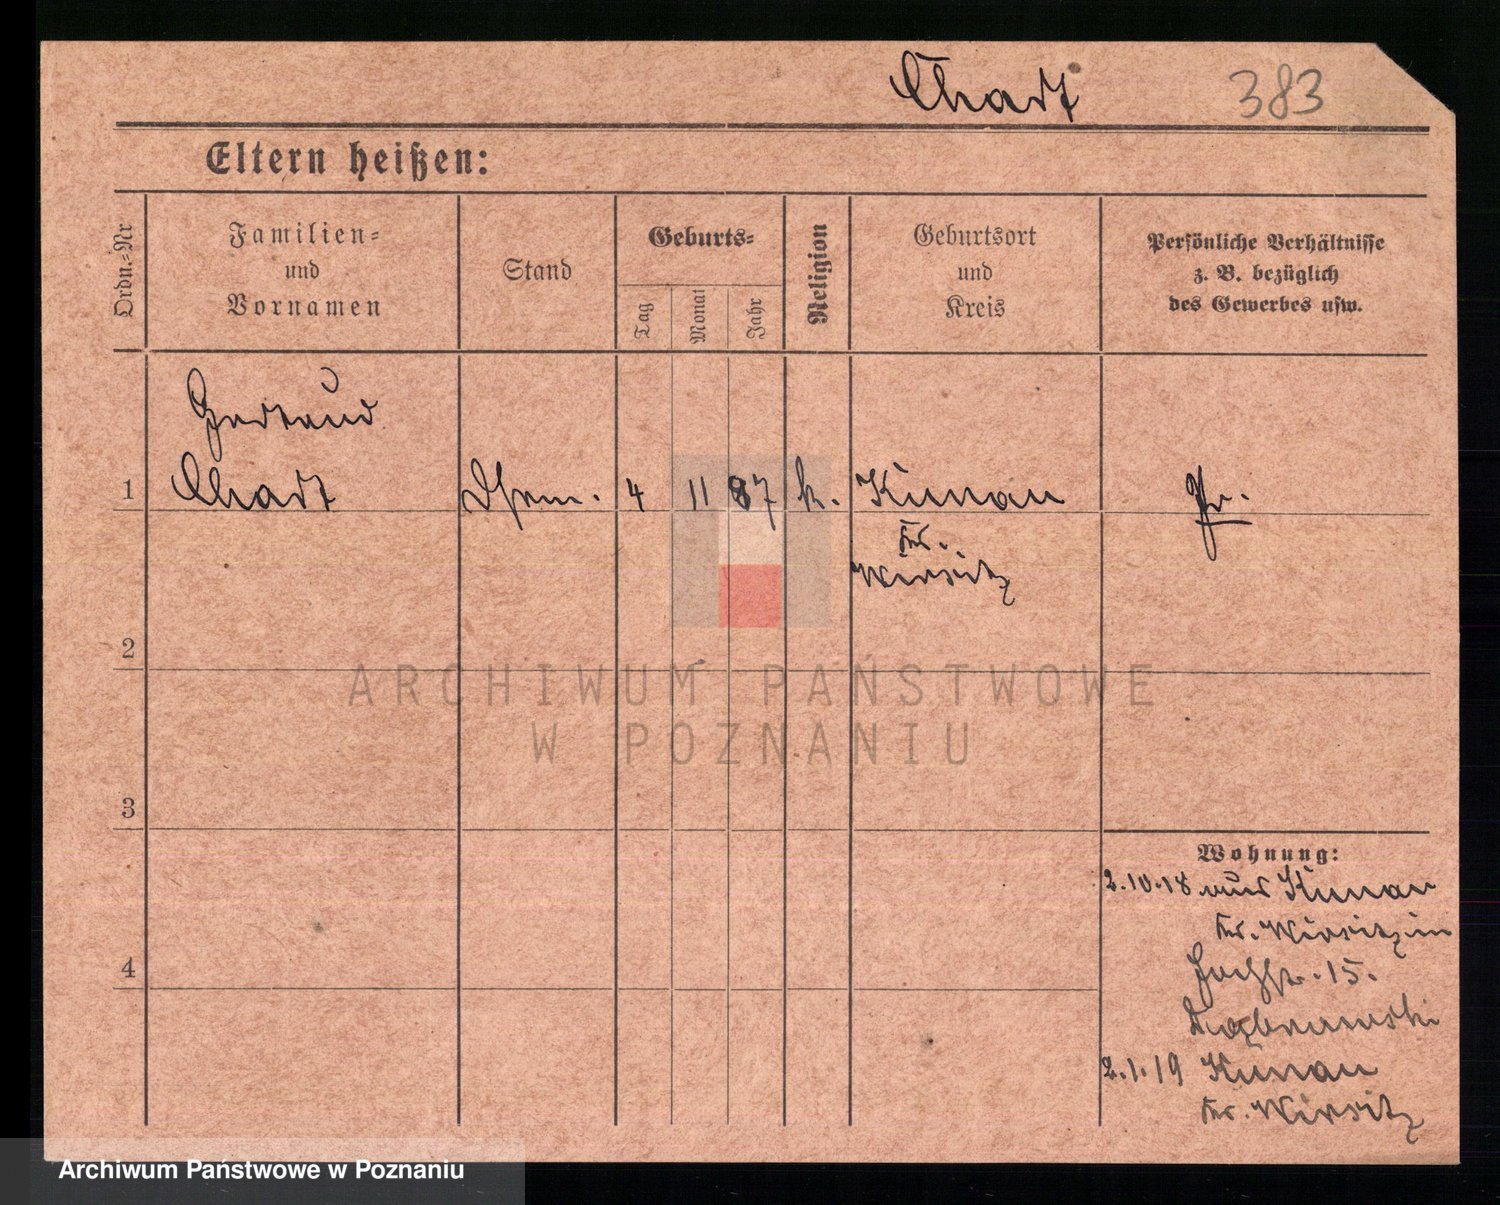 Chart 383
Eltern heißen:
Ordn.-Nr
Familien-
und
Vornamen
Stand
Geburts-
Tag
Monat
Jahr
Religion
Geburtsort
und
Kreis
Persönliche Verhältnisse
z. B. bezüglich
des Gewerbes usw.
Gertrud
1 Chart 4 11 87 k. Kunau Pr.
Kr.
Wirsitz
2
3
4
Wohnung:
2.10.18 aus Kunau
Kr. Wirsitz in
15.
2.1.19 Kunau
Kr. Wirsitz
ARCHIWUM PAŃSTWOWE
W POZNANIU
Archiwum Państwowe w Poznaniu